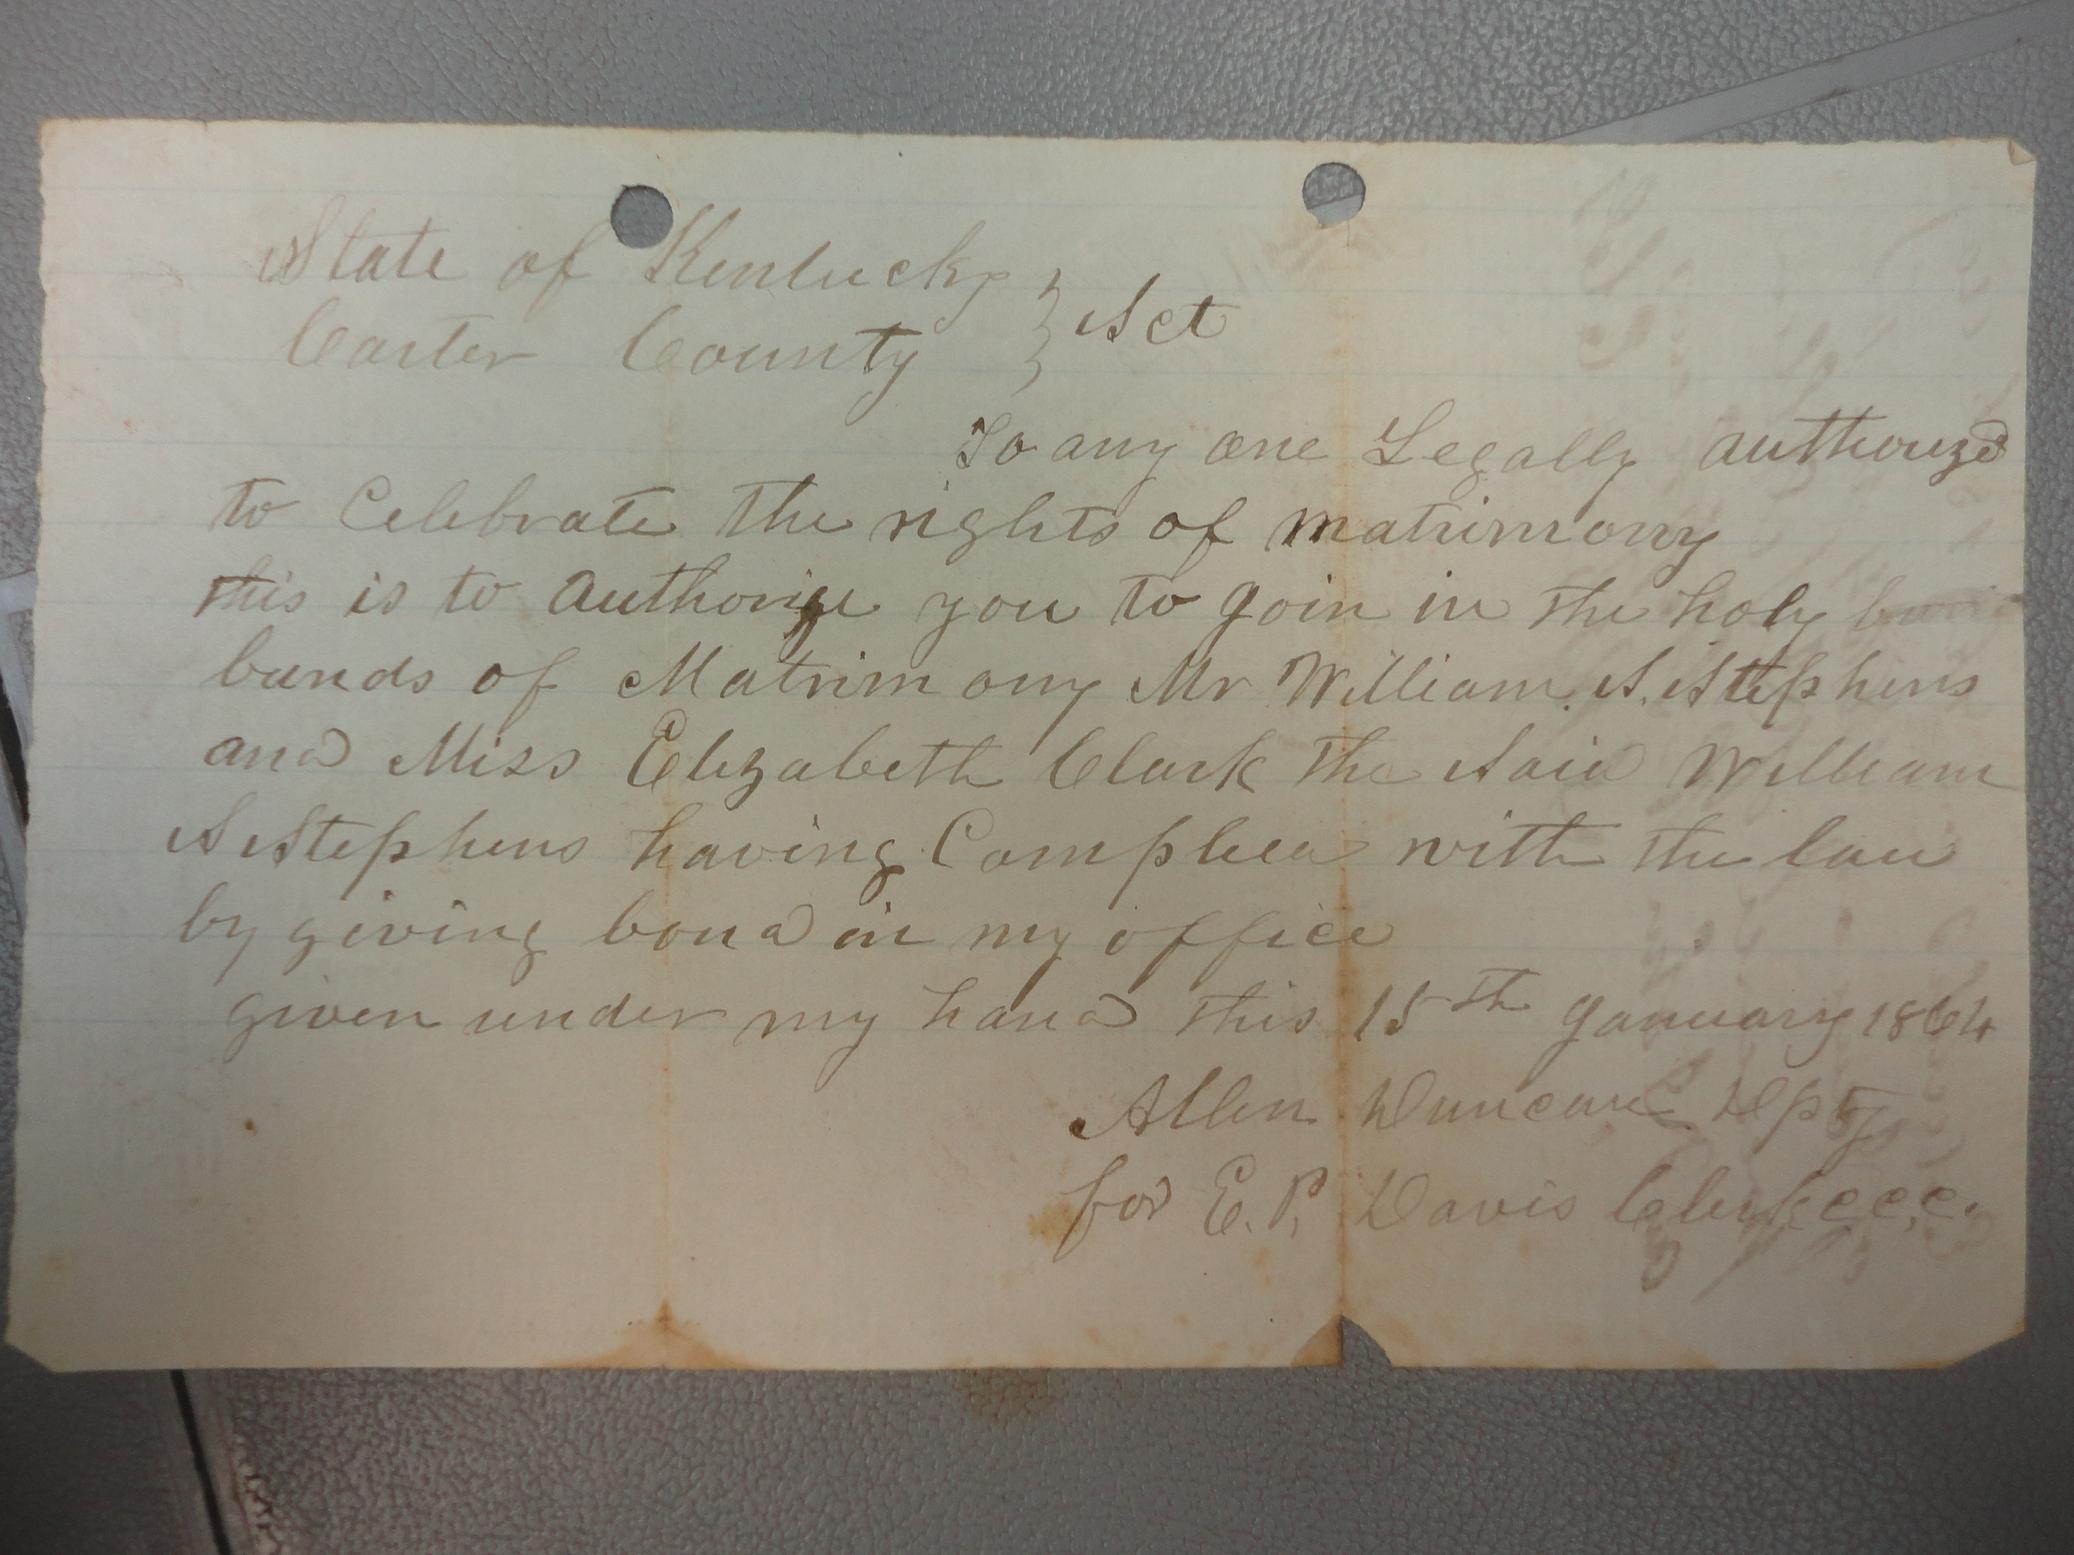 State of Kentucky } Sct
Carter County
To any one Legally authorized
to Celebrate the rights of matrimony
this is to authorize you to join in the holy
bands of Matrimony Mr William S. Stephens
and Miss Elizabeth Clark the Said William
S Stephens having Complied with the law
by giving bond in my office
given under my hand this 15th January 1864
Allen Duncan Dpty
for E. P. Davis Clerk C.C.C.